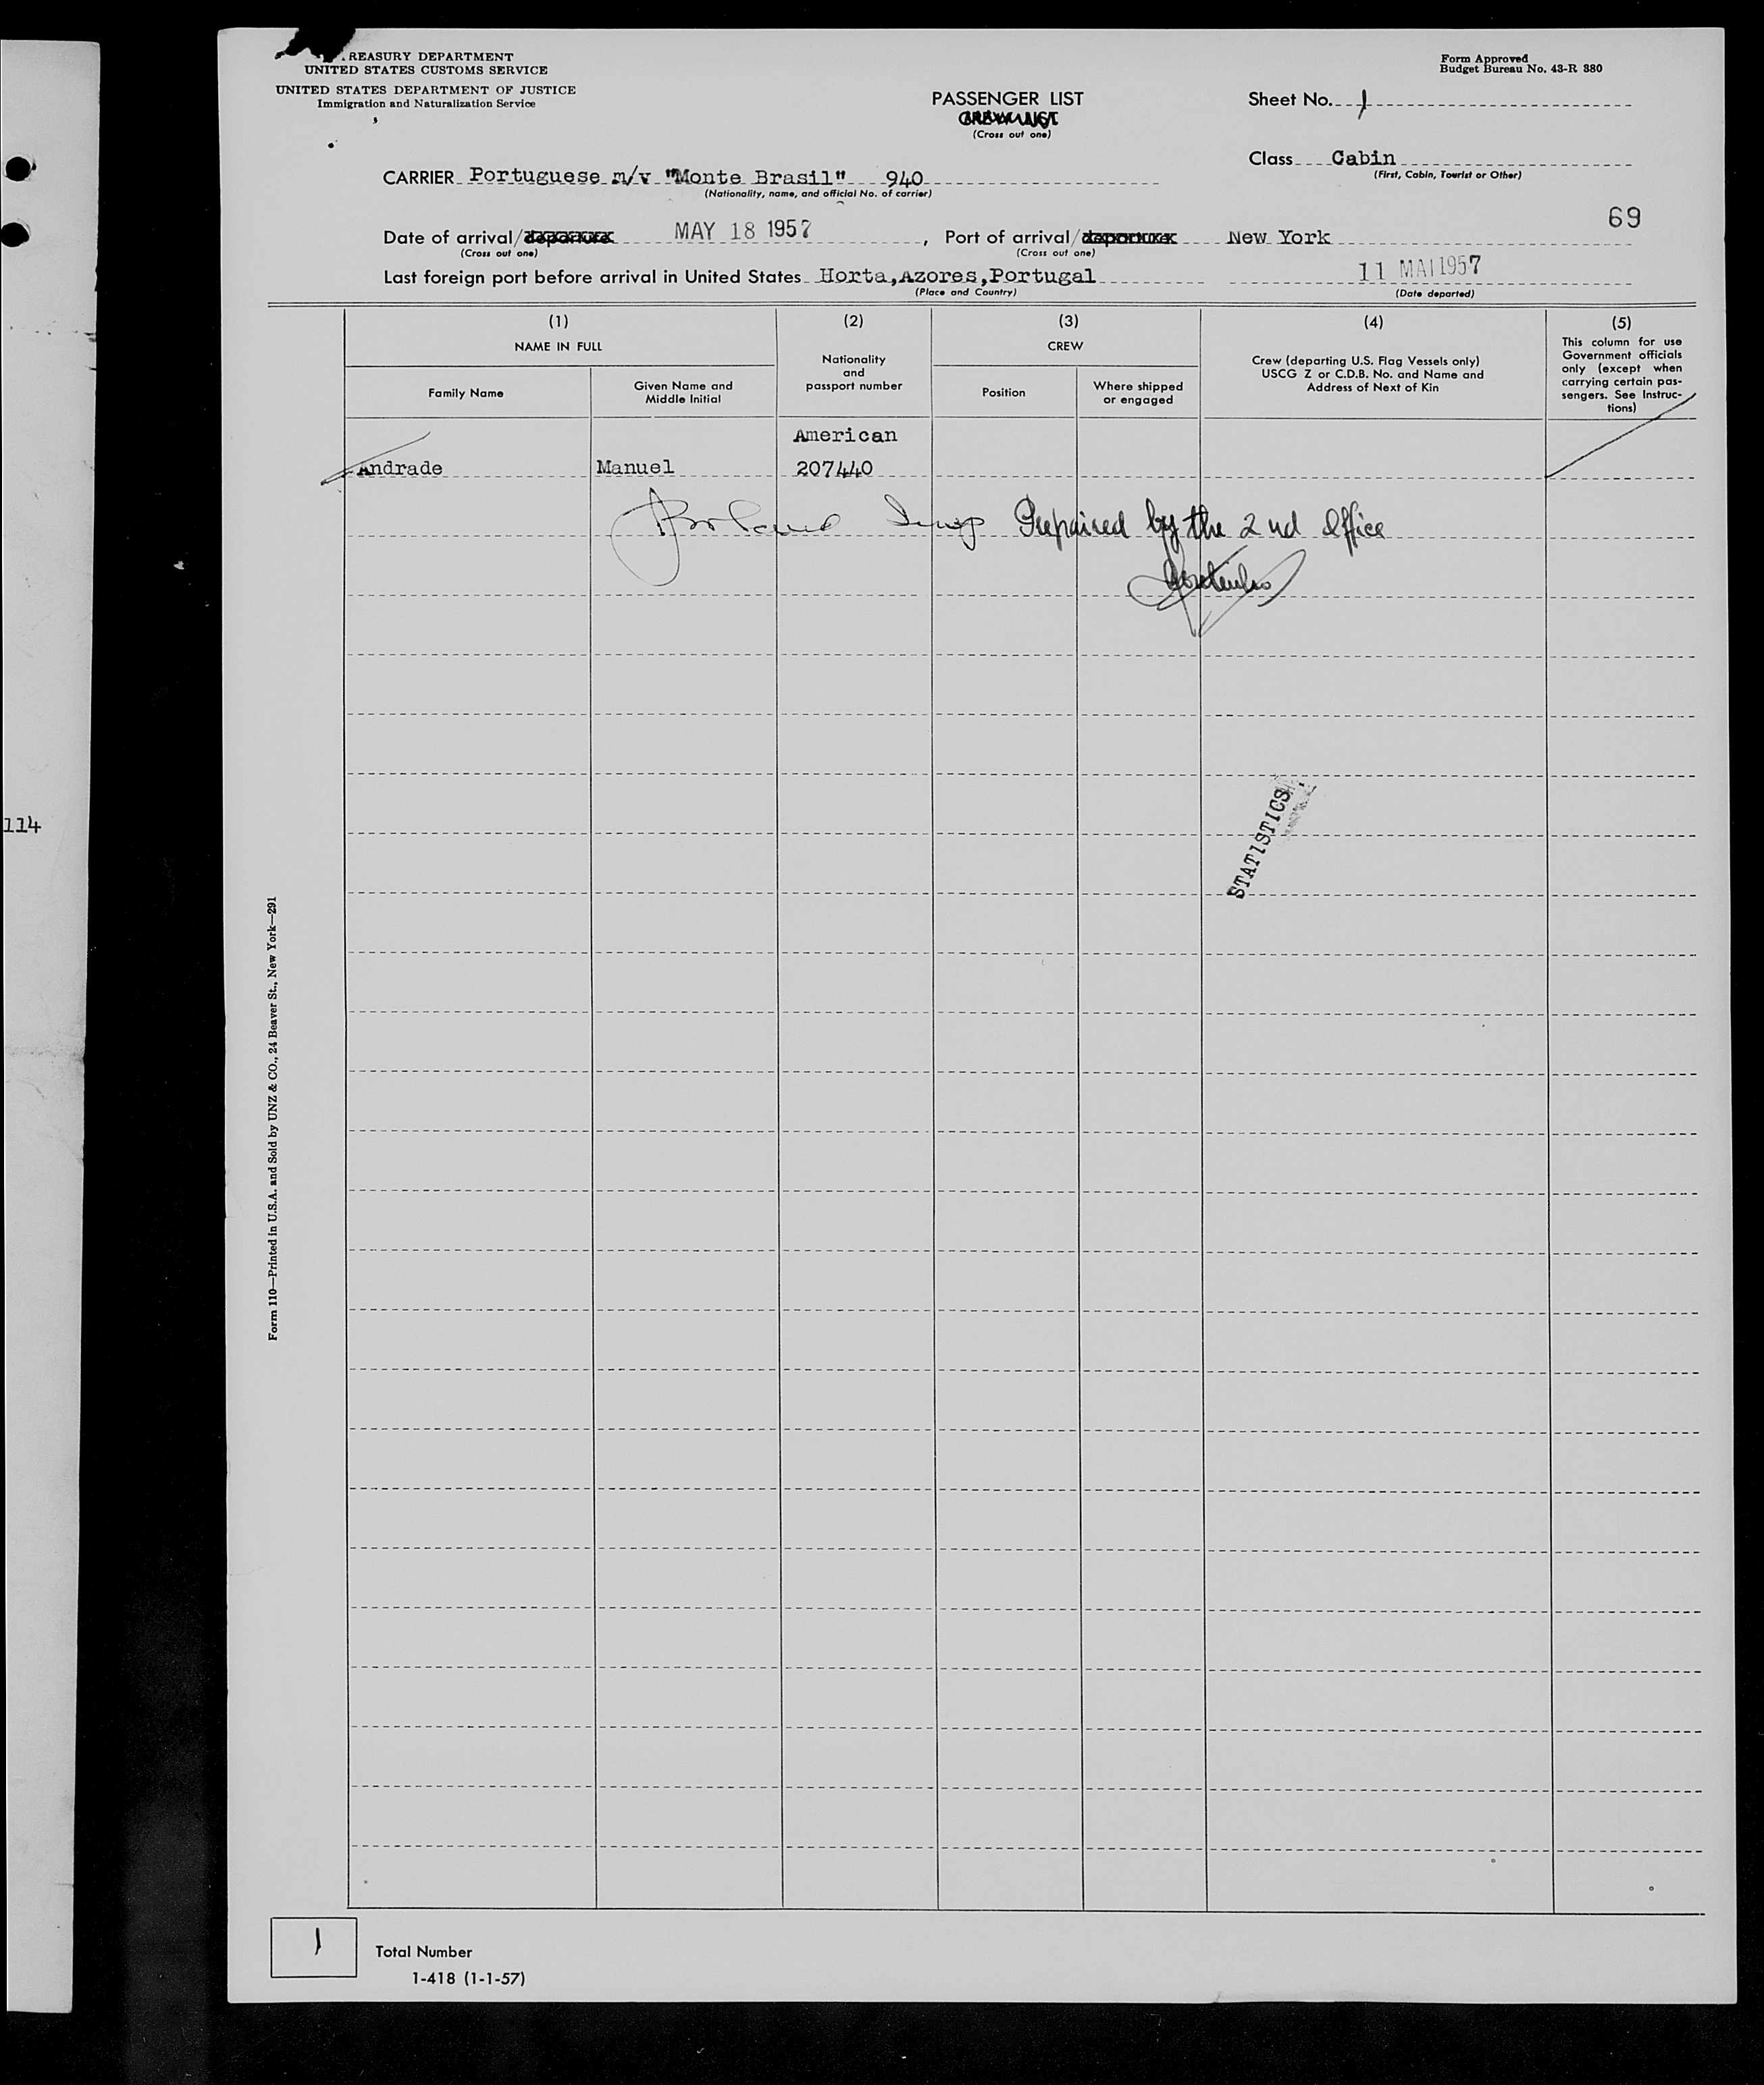 REASURY DEPARTMENT
UNITED STATES CUSTOMS SERVICE
UNITED STATES DEPARTMENT OF JUSTICE
Immigration and Naturalization Service
Form Approved
Budget Bureau No. 43-R 380
PASSENGER LIST
(Cross out one)
Sheet No. 1
Class Cabin
(First, Cabin, Tourist or Other)
CARRIER Portuguese m/v "Monte Brasil" 940
(Nationality, name, and official No. of carrier)
69
Date of arrival/departure MAY 18 1957, Port of arrival/departure New York
(Cross out one) (Cross out one)
Last foreign port before arrival in United States Horta,Azores,Portugal 11 MAI 1957
(Place and Country) (Date departed)
(1) (2) (3) (4) (5)
NAME IN FULL
Family Name
Given Name and
Middle Initial
Nationality
and
passport number
CREW
Position
Where shipped
or engaged
Crew (departing U.S. Flag Vessels only)
USCG Z or C.D.B. No. and Name and
Address of Next of Kin
This column for use
Government officials
only (except when
carrying certain pas-
sengers. See Instruc-
tions)
American
Andrade Manuel 207440
Prepaired by the 2nd Office
STATISTICS
114
Form 110—Printed in U.S.A. and Sold by UNZ & CO., 24 Beaver St., New York—291
1
Total Number
1-418 (1-1-57)